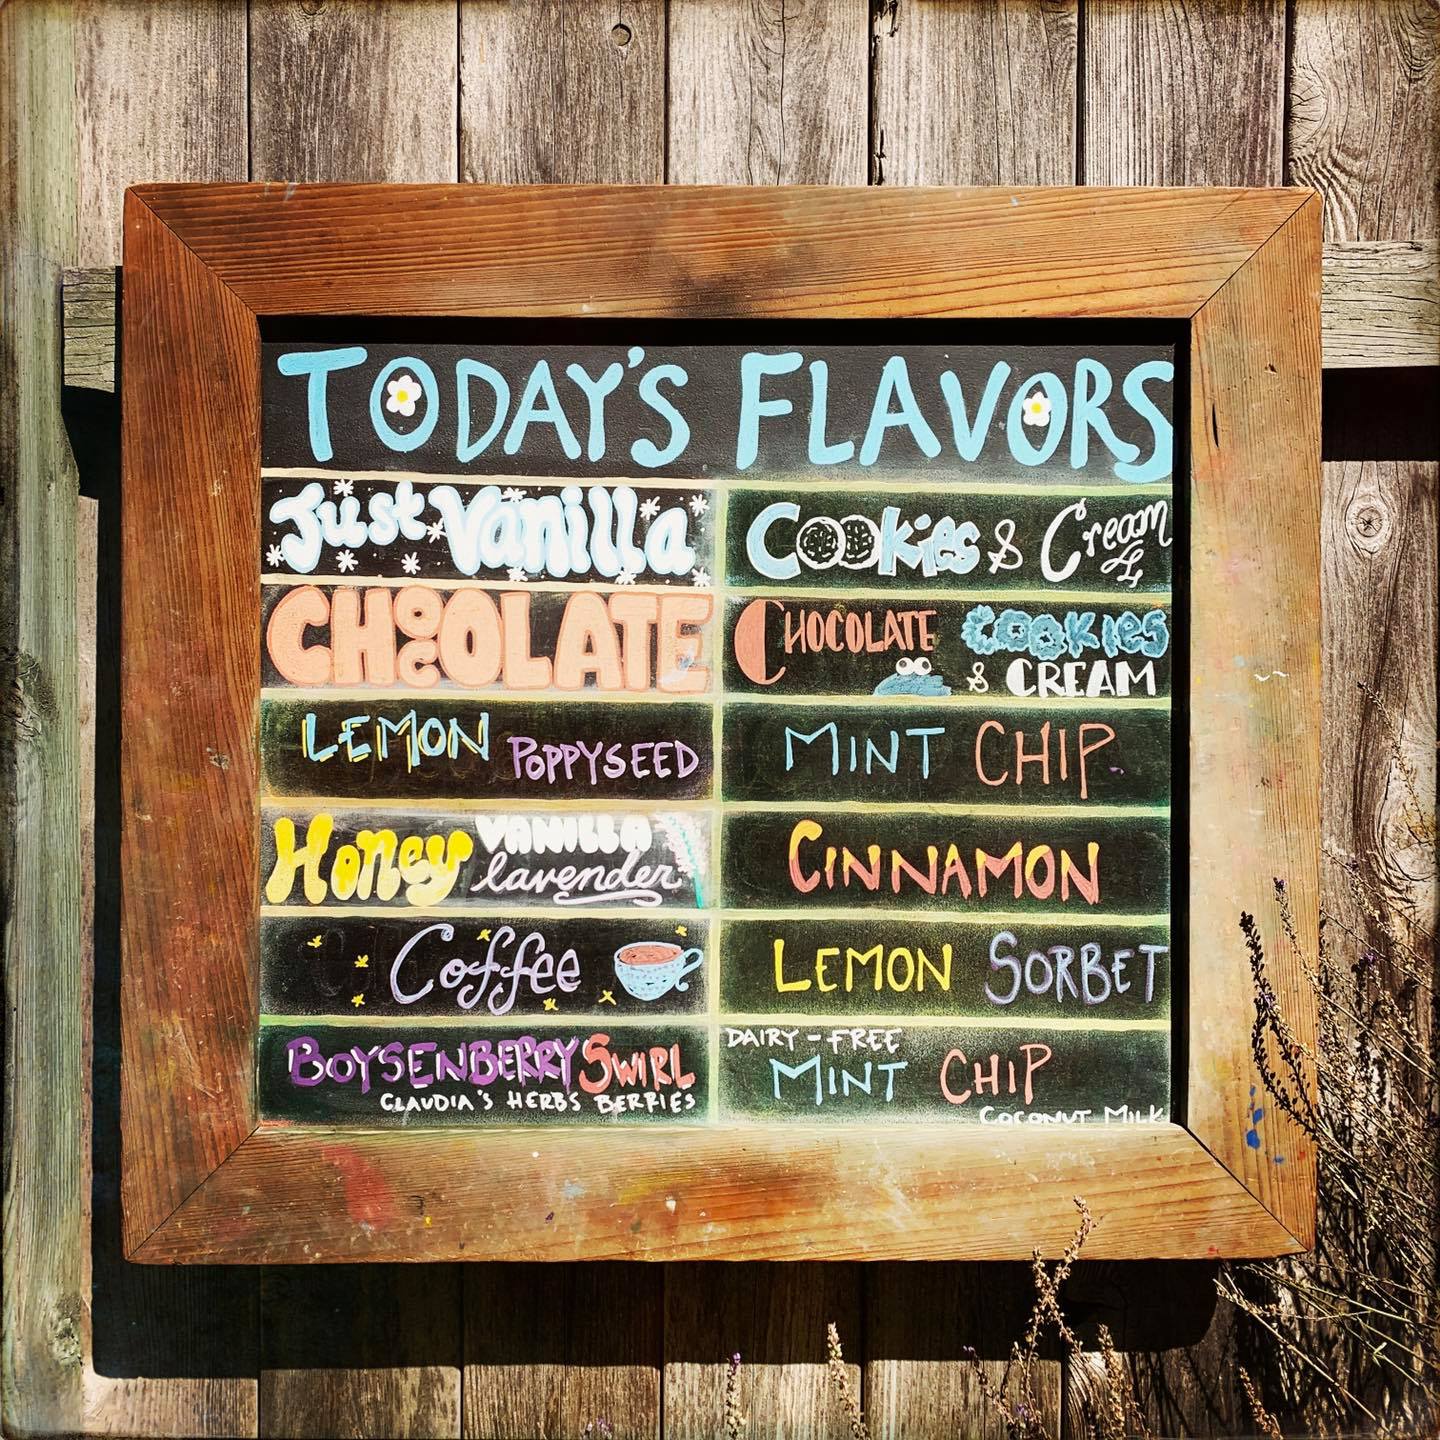 TODAY'S FLAVORS
Just Vanilla
CHOCOLATE
LEMON POPPYSEED
Honey VANILLA
lavender
Coffee
BOYSENBERRY SWIRL
CLAUDIA'S HERBS BERRIES
COOkies & Cream
CHOCOLATE COOKIES
& CREAM
MINT CHIP
CINNAMON
LEMON SORBET
DAIRY-FREE
MINT CHIP
COCONUT MILK